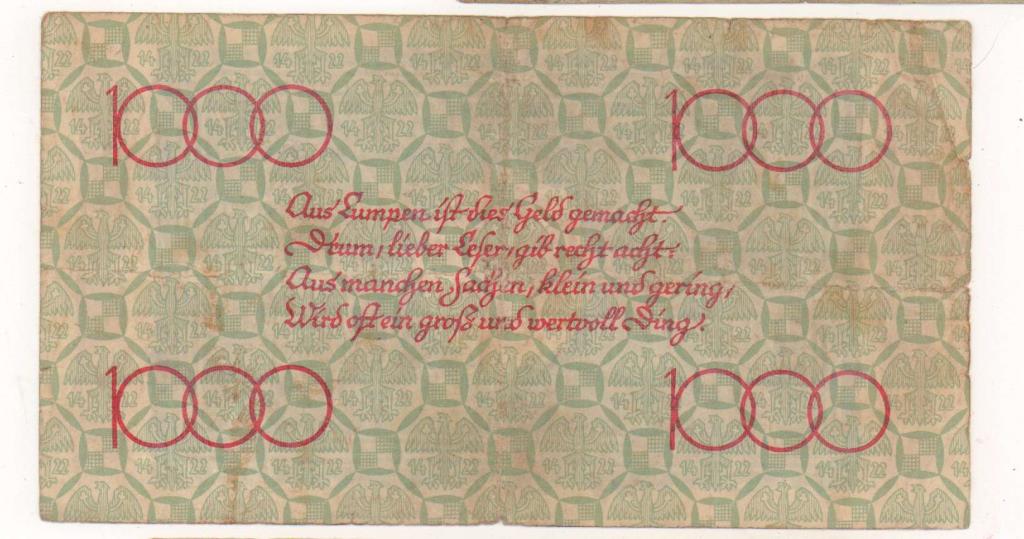 1000 1000
Aus Lumpen ist dies Geld gemacht
Drum, lieber Leser, gib recht acht:
Aus manchen Sachen, klein und gering,
Wird oft ein groß und wertvoll Ding.
1000 1000
14 22